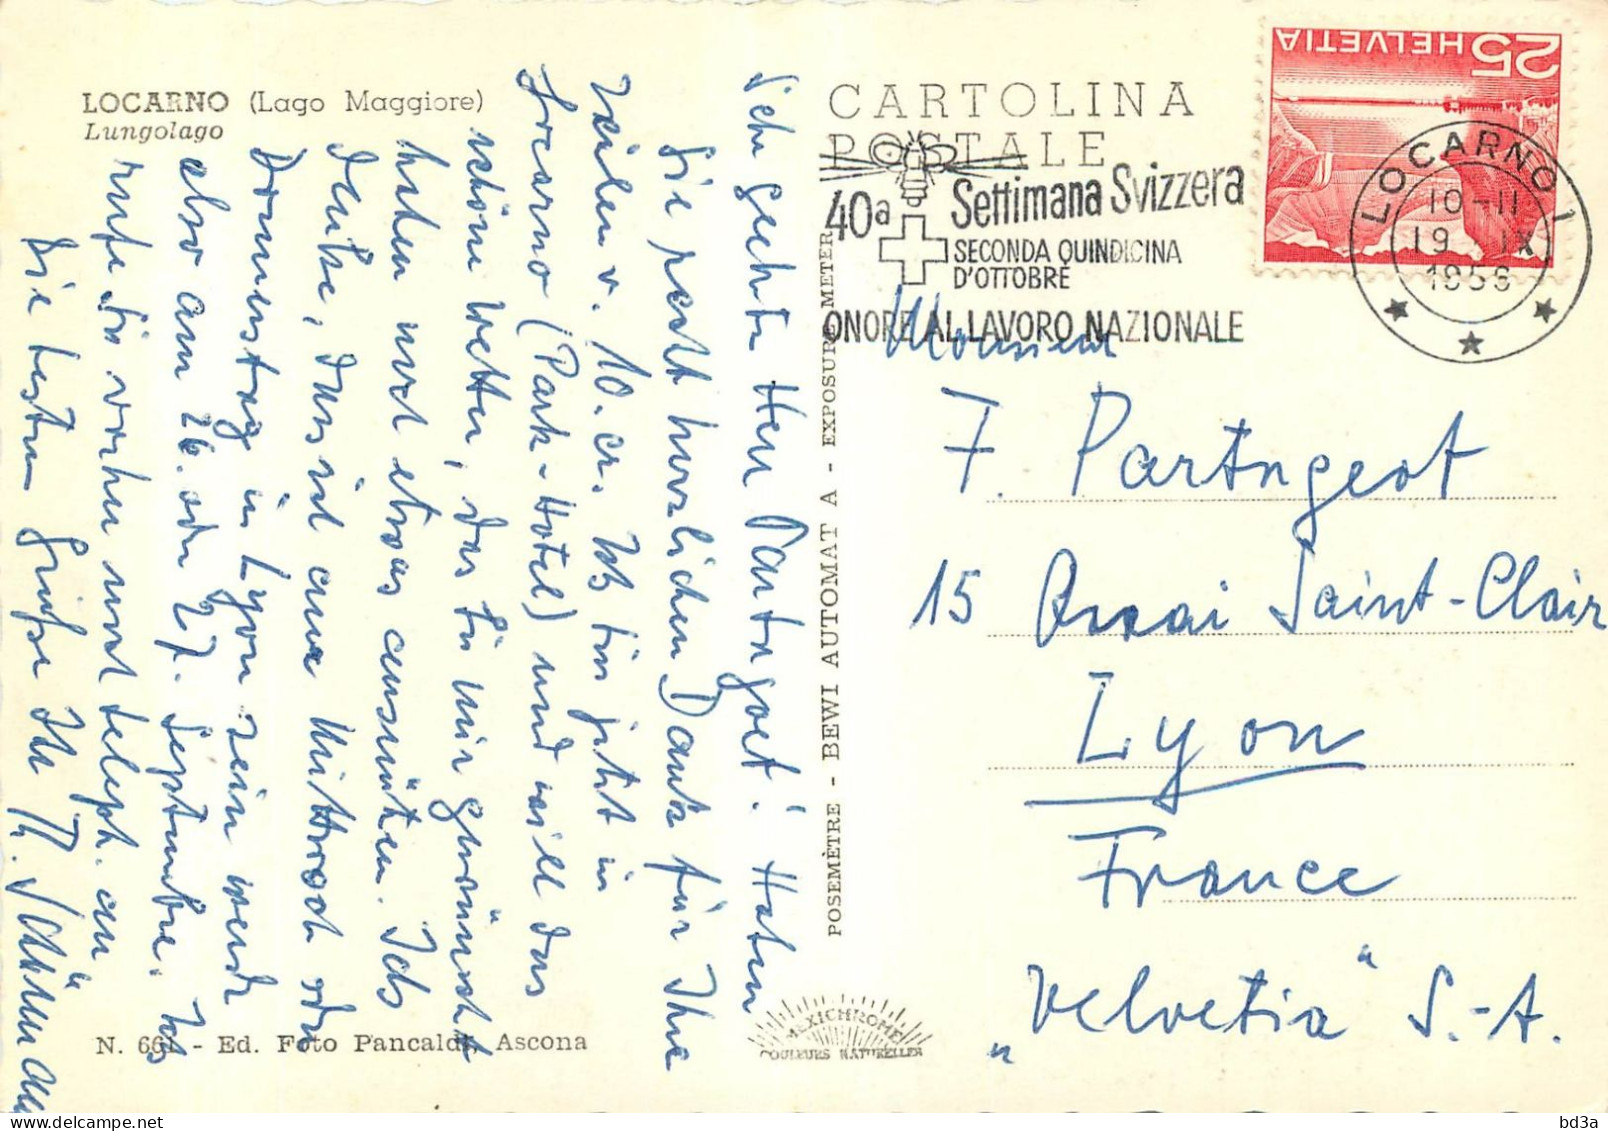 LOCARNO (Lago Maggiore)
Lungolago
Sehr geehrter Herr Partngeot! Haben
Sie recht herzlichen Dank für Ihre
Zeilen v. 10. cr. Ich bin jetzt in
Locarno (Park-Hotel) und will das
schöne Wetter, das Sie mir gewünscht
haben noch etwas ausnützen. Ich
denke, dass ich am Mittwoch oder
Donnerstag in Lyon sein werde
also am 26. oder 27. September. Ich
rufe Sie vorher noch teleph. an
Die besten Grüsse Ihr
N. 661 - Ed. Foto Pancaldi, Ascona
POSEMÈTRE - BEWI AUTOMAT A - EXPOSURE METER
MEXICHROME
COULEURS NATURELLES
CARTOLINA
POSTALE
40a Settimana Svizzera
SECONDA QUINDICINA
D'OTTOBRE
ONORE AL LAVORO NAZIONALE
25 HELVETIA
LOCARNO 1
10-11
19. IX.
1956
Monsieur
F. Partngeot
15 Quai Saint-Clair
Lyon
France
„Velvetia“ S.-A.
bd3a